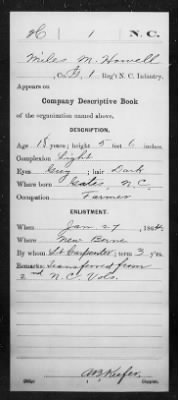 H | 1 | N.C.
Miles M. Howell
Co. D, 1 Reg't N. C. Infantry.
Appears on
Company Descriptive Book
of the organization named above.
DESCRIPTION.
Age 18 years; height 5 feet 6 inches.
Complexion Light
Eyes Grey; hair Dark
Where born Gates, N.C.
Occupation Farmer
ENLISTMENT.
When Jan 27, 1864.
Where New Berne
By whom Lt Carpenter; term 3 y'rs.
Remarks: Transferred from
2nd N.C. Vols.
Copyist.